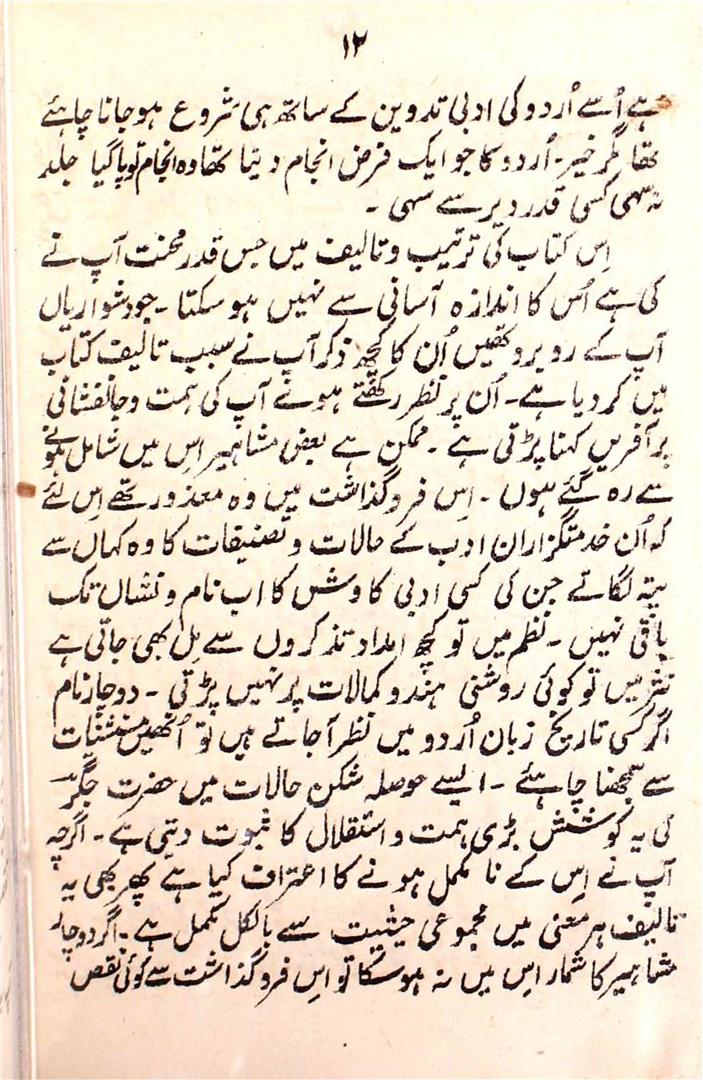 ۱۲
ہے اُسے اُردو کی ادبی تدوین کے ساتھ ہی شروع ہو جانا چاہئے
تھا مگر خیر۔ اُردو کا جو ایک فرض انجام دینا تھا وہ انجام تو پا گیا جلد
نہ سہی کسی قدر دیر سے سہی ۔
اِس کتاب کی ترتیب و تالیف میں جس قدر محنت آپ نے
کی ہے اُس کا اندازہ آسانی سے نہیں ہو سکتا ۔ جو دشواریاں
آپ کے روبرو تھیں اُن کا کچھ ذکر آپ نے سبب تالیف کتاب
میں کر دیا ہے ۔ اُن پر نظر رکھتے ہوئے آپ کی ہمت و جانفشانی
پر آفریں کہنا پڑتی ہے ۔ ممکن ہے بعض مشاہیر اِس میں شامل ہونے
سے رہ گئے ہوں ۔ اِس فروگذاشت میں وہ معذور تھے اِس لئے
کہ اُن خدمتگزاران ادب کے حالات و تصنیفات کا وہ کہاں سے
پتہ لگاتے جن کی کسی ادبی کاوش کا اب نام و نشاں تک
باقی نہیں ۔ نظم میں تو کچھ امداد تذکروں سے مِل بھی جاتی ہے
نثر میں تو کوئی روشنی ہندو کمالات پر نہیں پڑتی ۔ دو چار نام
اگر کسی تاریخ زبان اُردو میں نظر آ جاتے ہیں تو اُنھیں مستثنیات
سے سمجھنا چاہئے ۔ ایسے حوصلہ شکن حالات میں حضرت جگرؔ
کی یہ کوشش بڑی ہمت و استقلال کا ثبوت دیتی ہے ۔ اگرچہ
آپ نے اِس کے نا مکمل ہونے کا اعتراف کیا ہے پھر بھی یہ
تالیف ہر معنی میں مجموعی حیثیت سے بالکل مکمل ہے ۔ اگر دو چار
مشاہیر کا شمار اس میں نہ ہو سکا تو اِس فروگذاشت سے کوئی نقص